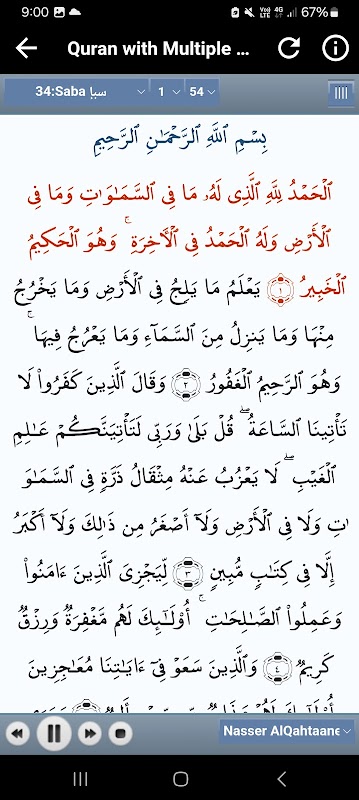 9:00 67%
Quran with Multiple ...
34:Saba سبإ 1 54
بِسْمِ ٱللَّهِ ٱلرَّحْمَـٰنِ ٱلرَّحِيمِ
ٱلْحَمْدُ لِلَّهِ ٱلَّذِى لَهُۥ مَا فِى ٱلسَّمَـٰوَٰتِ وَمَا فِى
ٱلْأَرْضِ وَلَهُ ٱلْحَمْدُ فِى ٱلْـَٔاخِرَةِ ۚ وَهُوَ ٱلْحَكِيمُ
ٱلْخَبِيرُ ﴿١﴾ يَعْلَمُ مَا يَلِجُ فِى ٱلْأَرْضِ وَمَا يَخْرُجُ
مِنْهَا وَمَا يَنزِلُ مِنَ ٱلسَّمَآءِ وَمَا يَعْرُجُ فِيهَا ۚ
وَهُوَ ٱلرَّحِيمُ ٱلْغَفُورُ ﴿٢﴾ وَقَالَ ٱلَّذِينَ كَفَرُوا۟ لَا
تَأْتِينَا ٱلسَّاعَةُ ۖ قُلْ بَلَىٰ وَرَبِّى لَتَأْتِيَنَّكُمْ عَـٰلِمِ
ٱلْغَيْبِ ۖ لَا يَعْزُبُ عَنْهُ مِثْقَالُ ذَرَّةٍ فِى ٱلسَّمَـٰوَ
ٰتِ وَلَا فِى ٱلْأَرْضِ وَلَآ أَصْغَرُ مِن ذَٰلِكَ وَلَآ أَكْبَرُ
إِلَّا فِى كِتَـٰبٍ مُّبِينٍ ﴿٣﴾ لِّيَجْزِىَ ٱلَّذِينَ ءَامَنُوا۟
وَعَمِلُوا۟ ٱلصَّـٰلِحَـٰتِ ۚ أُو۟لَـٰٓئِكَ لَهُم مَّغْفِرَةٌ وَرِزْقٌ
كَرِيمٌ ﴿٤﴾ وَٱلَّذِينَ سَعَوْ فِىٓ ءَايَـٰتِنَا مُعَـٰجِزِينَ
Nasser AlQahtaane